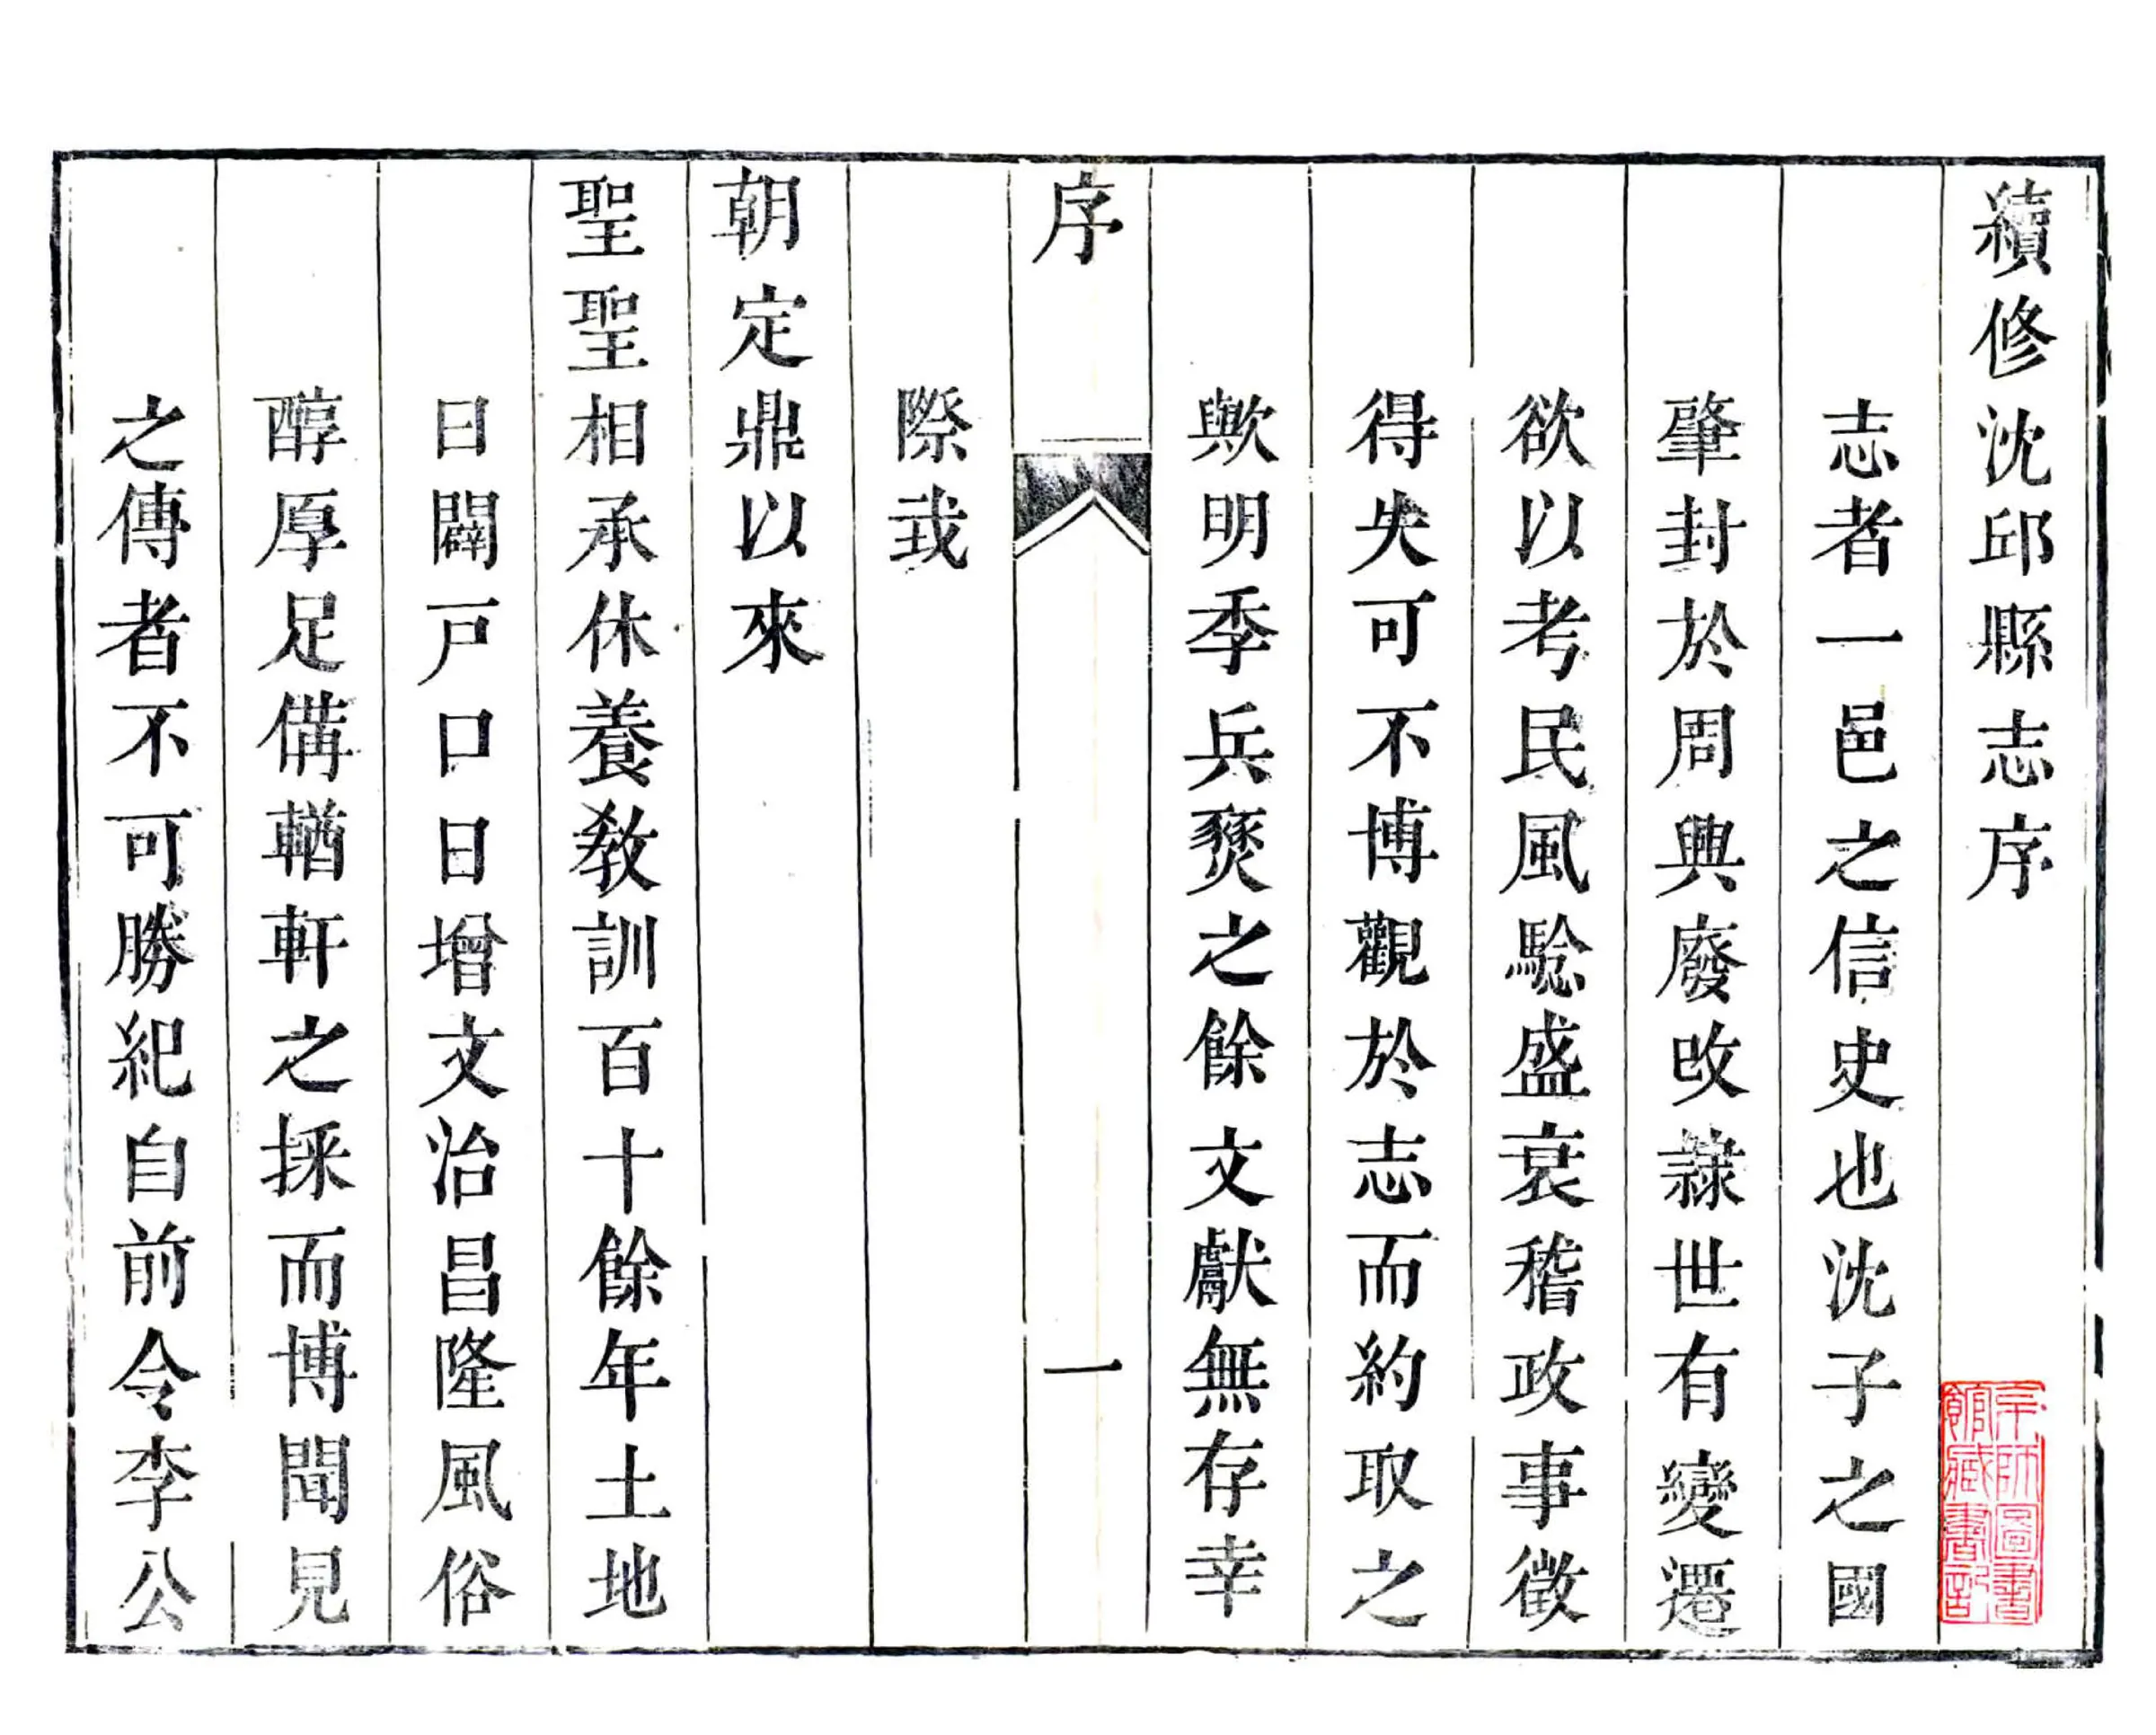 續修沈邱縣志序
志者一邑之信史也沈子之國
肇封於周興廢改隷世有變遷
欲以考民風騐盛衰稽政事徵
得失可不博觀於志而約取之
歟明季兵燹之餘文獻無存幸
序
一
際我
朝定鼎以來
聖聖相承休養教訓百十餘年土地
日闢戸口日增文治昌隆風俗
醇厚足備輶軒之採而博聞見
之傳者不可勝紀自前令李公